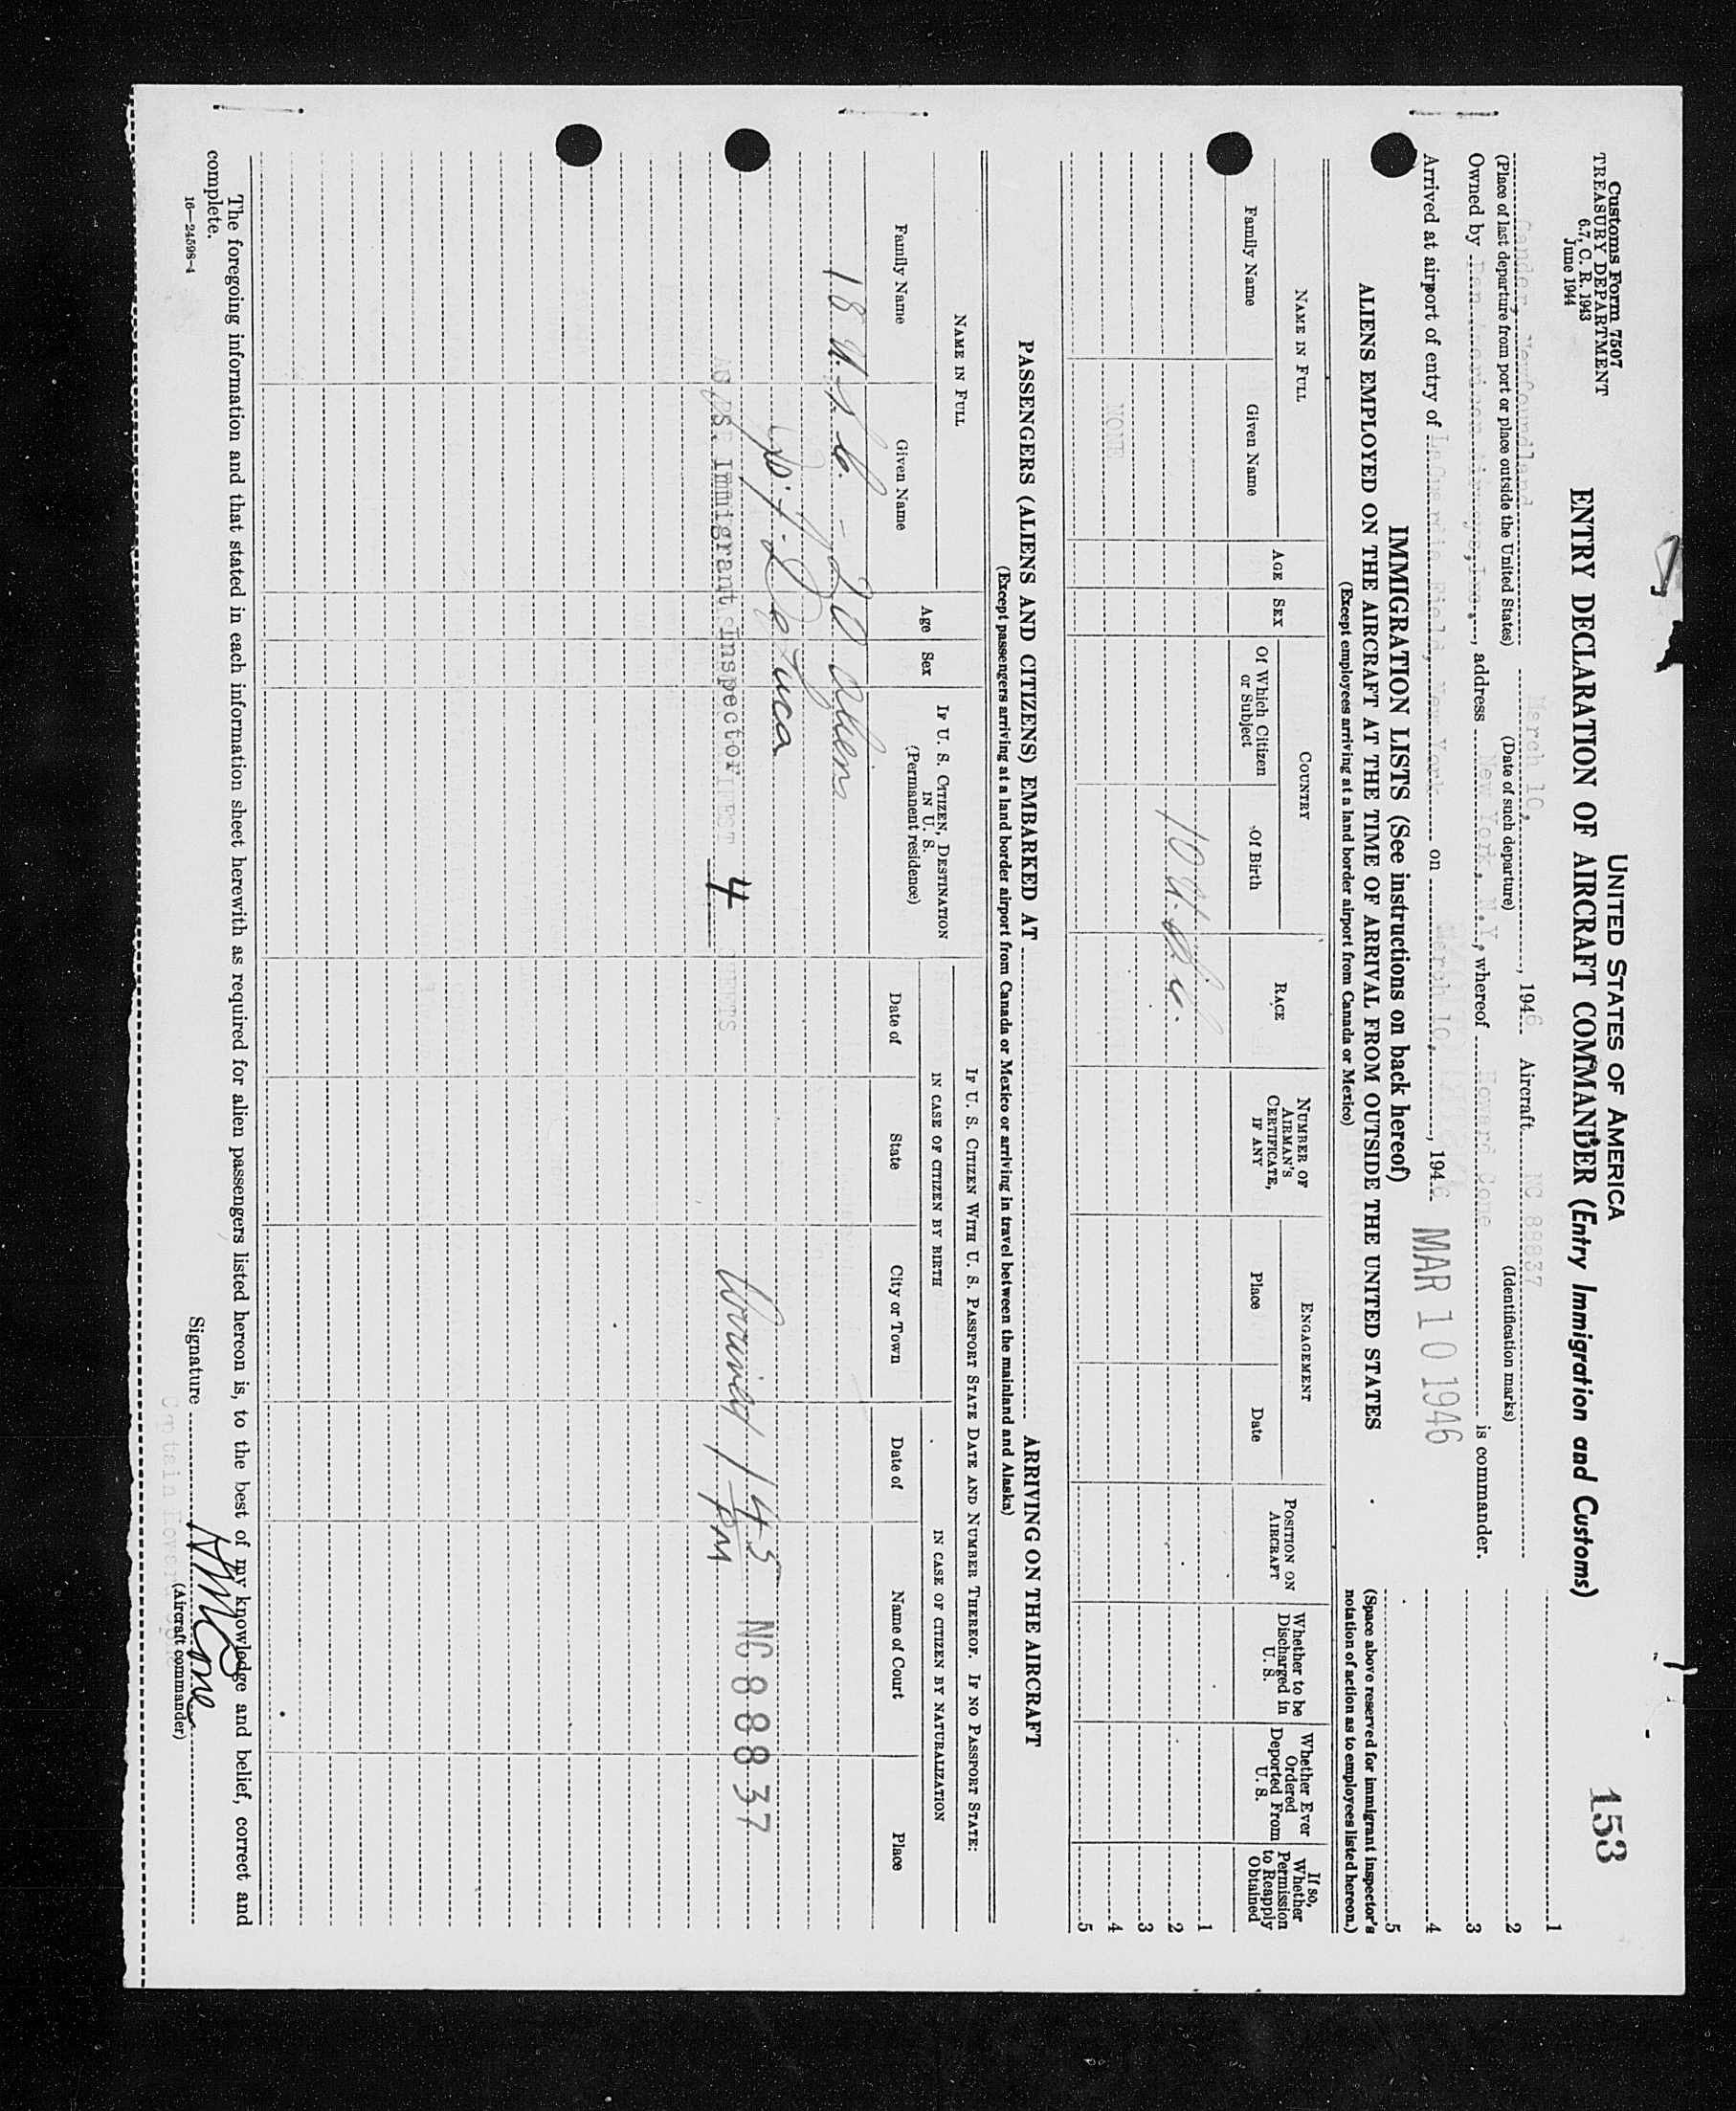 Customs Form 7507
TREASURY DEPARTMENT
6.7, C. R. 1943
June 1944
UNITED STATES OF AMERICA
ENTRY DECLARATION OF AIRCRAFT COMMANDER (Entry Immigration and Customs)
153
Gander, Newfoundland March 10, , 1946 Aircraft NC 88837
(Place of last departure from port or place outside the United States) (Date of such departure) (Identification marks)
Owned by Pan American Airways, Inc., address New York, N.Y., whereof Howard Cone is commander.
Arrived at airport of entry of LaGuardia Field, New York on March 10, , 1946 MAR 10 1946
1
2
3
4
5
IMMIGRATION LISTS (See instructions on back hereof)
ALIENS EMPLOYED ON THE AIRCRAFT AT THE TIME OF ARRIVAL FROM OUTSIDE THE UNITED STATES
(Except employees arriving at a land border airport from Canada or Mexico)
(Space above reserved for immigrant inspector's notation of action as to employees listed hereon.)
NAME IN FULL
Family Name
Given Name
AGE
SEX
COUNTRY
Of Which Citizen or Subject
Of Birth
RACE
NUMBER OF AIRMAN'S CERTIFICATE, IF ANY
ENGAGEMENT
Place
Date
POSITION ON AIRCRAFT
Whether to be Discharged in U. S.
Whether Ever Ordered Deported From U. S.
If so, Whether Permission to Reapply Obtained
1
10 U.S.C. 2
3
NONE 4
5
PASSENGERS (ALIENS AND CITIZENS) EMBARKED AT ARRIVING ON THE AIRCRAFT
(Except passengers arriving at a land border airport from Canada or Mexico or arriving in travel between the mainland and Alaska)
NAME IN FULL
Family Name
Given Name
Age
Sex
IF U. S. CITIZEN, DESTINATION IN U. S.
(Permanent residence)
IF U. S. CITIZEN WITH U. S. PASSPORT STATE DATE AND NUMBER THEREOF. IF NO PASSPORT STATE:
IN CASE OF CITIZEN BY BIRTH
Date of
State
City or Town
IN CASE OF CITIZEN BY NATURALIZATION
Date of
Name of Court
Place
18 U.S.C. - 20 aliens
De Luca
U.S. Immigrant Inspector 4 SHEETS 1 45 PM NC 88837
The foregoing information and that stated in each information sheet herewith as required for alien passengers listed hereon is, to the best of my knowledge and belief, correct and
complete.
Signature HM Cone
(Aircraft commander)
16—24598-4